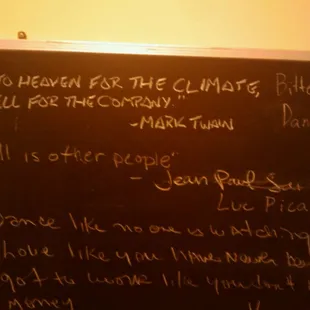 TO HEAVEN FOR THE CLIMATE, Bitte
ELL FOR THE COMPANY." Dan
- MARK TWAIN
ll is other people"
- Jean Paul Sar
Luc Pica
Dance like no one is watching
love like you have never
got to work like you don't
money